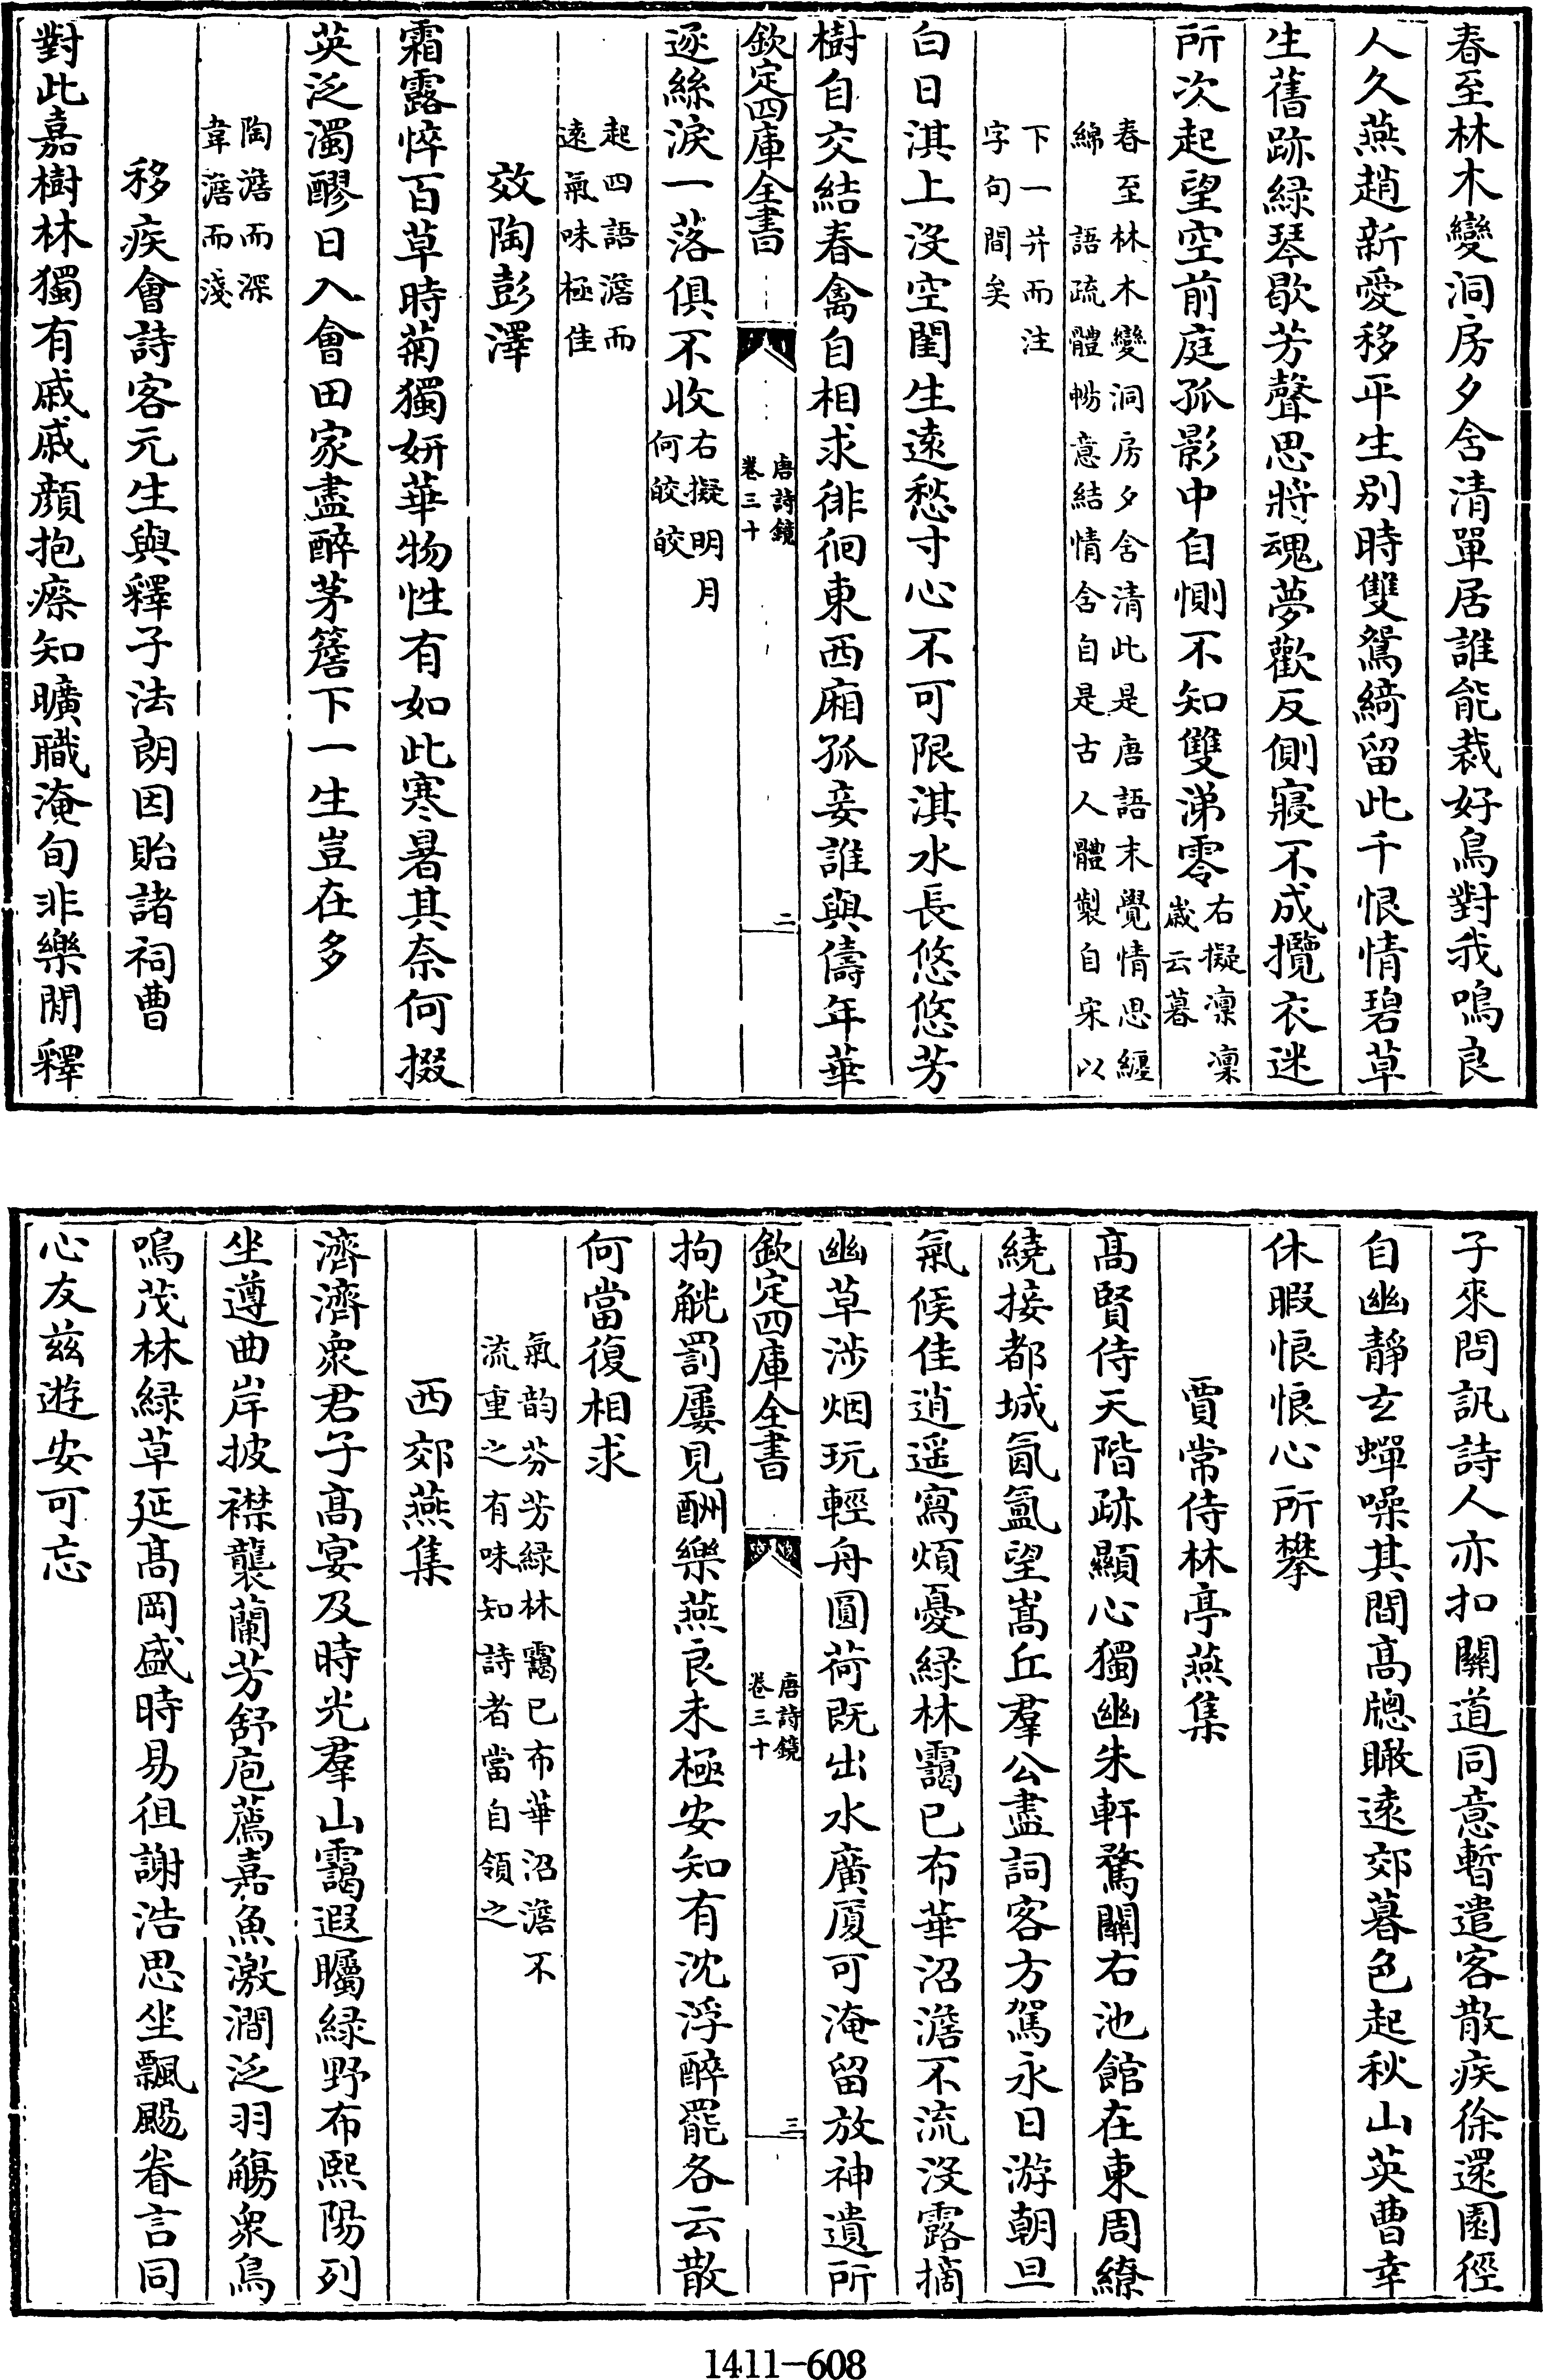 春至林木變洞房夕含清單居誰能裁好鳥對我鳴良
人久燕趙新愛移平生别時雙鴛綺留此千恨情碧草
生舊跡緑琴歇芳聲思將魂夢歡反側寢不成攬衣迷
所次起望空前庭孤影中自惻不知雙涕零右擬凛凛
歲云暮
春至林木變洞房夕含清此是唐語末覺情思纒
綿語疏體暢意結情含自是古人體製自宋以
下一并而注
字句間矣
白日淇上没空閨生逺愁寸心不可限淇水長悠悠芳
樹自交結春禽自相求徘徊東西廂孤妾誰與儔年華
欽定四庫全書
唐詩鏡
卷三十
二
逐絲淚一落俱不收右擬明月
何皎皎
起四語澹而
逺氣味極佳
效陶彭澤
霜露悴百草時菊獨妍華物性有如此寒暑其奈何掇
英泛濁醪日入會田家盡醉茅簷下一生豈在多
陶澹而深
韋澹而淺
移疾會詩客元生與釋子法朗因貽諸祠曹
對此嘉樹林獨有戚戚顔抱瘵知曠職淹旬非樂閒釋
子來問訊詩人亦扣關道同意暫遣客散疾徐還園徑
自幽靜玄蟬噪其間高牕瞰逺郊暮色起秋山英曹幸
休暇悢悢心所攀
賈常侍林亭燕集
髙賢侍天階跡顯心獨幽朱軒騖關右池館在東周繚
繞接都城氤氲望嵩丘羣公盡詞客方駕永日游朝旦
氣候佳逍遥寫煩憂緑林靄已布華沼澹不流没露摘
幽草涉烟玩輕舟圓荷既出水廣厦可淹留放神遺所
欽定四庫全書
唐詩鏡
卷三十
三
拘觥罰屢見酬樂燕良未極安知有沈浮醉罷各云散
何當復相求
氣韵芬芳緑林靄已布華沼澹不
流重之有味知詩者當自領之
西郊燕集
濟濟衆君子髙宴及時光羣山靄遐矚緑野布熙陽列
坐遵曲岸披襟襲蘭芳舒庖薦嘉魚激澗泛羽觴衆鳥
鳴茂林緑草延髙岡盛時易徂謝浩思坐飄颺眷言同
心友兹遊安可忘
1411-608